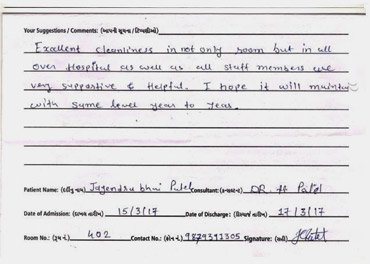 Your Suggestions / Comments: (આપની સૂચના / ટિપ્પણીઓ)
Excellent cleanliness in not only room but in all
over Hospital as well as all staff members are
very supportive & Helpful. I hope it will maintain
with same level year to year.
Patient Name: (દર્દીનું નામ) Jagendra bhai Patel Consultant: DR. Patel
Date of Admission: (દાખલ તારીખ) 15/3/17 Date of Discharge: 17/3/17
Room No.: (રૂમ નં.) 402 Contact No.: (ફોન નં.) 9879391305 Signature: (સહી)